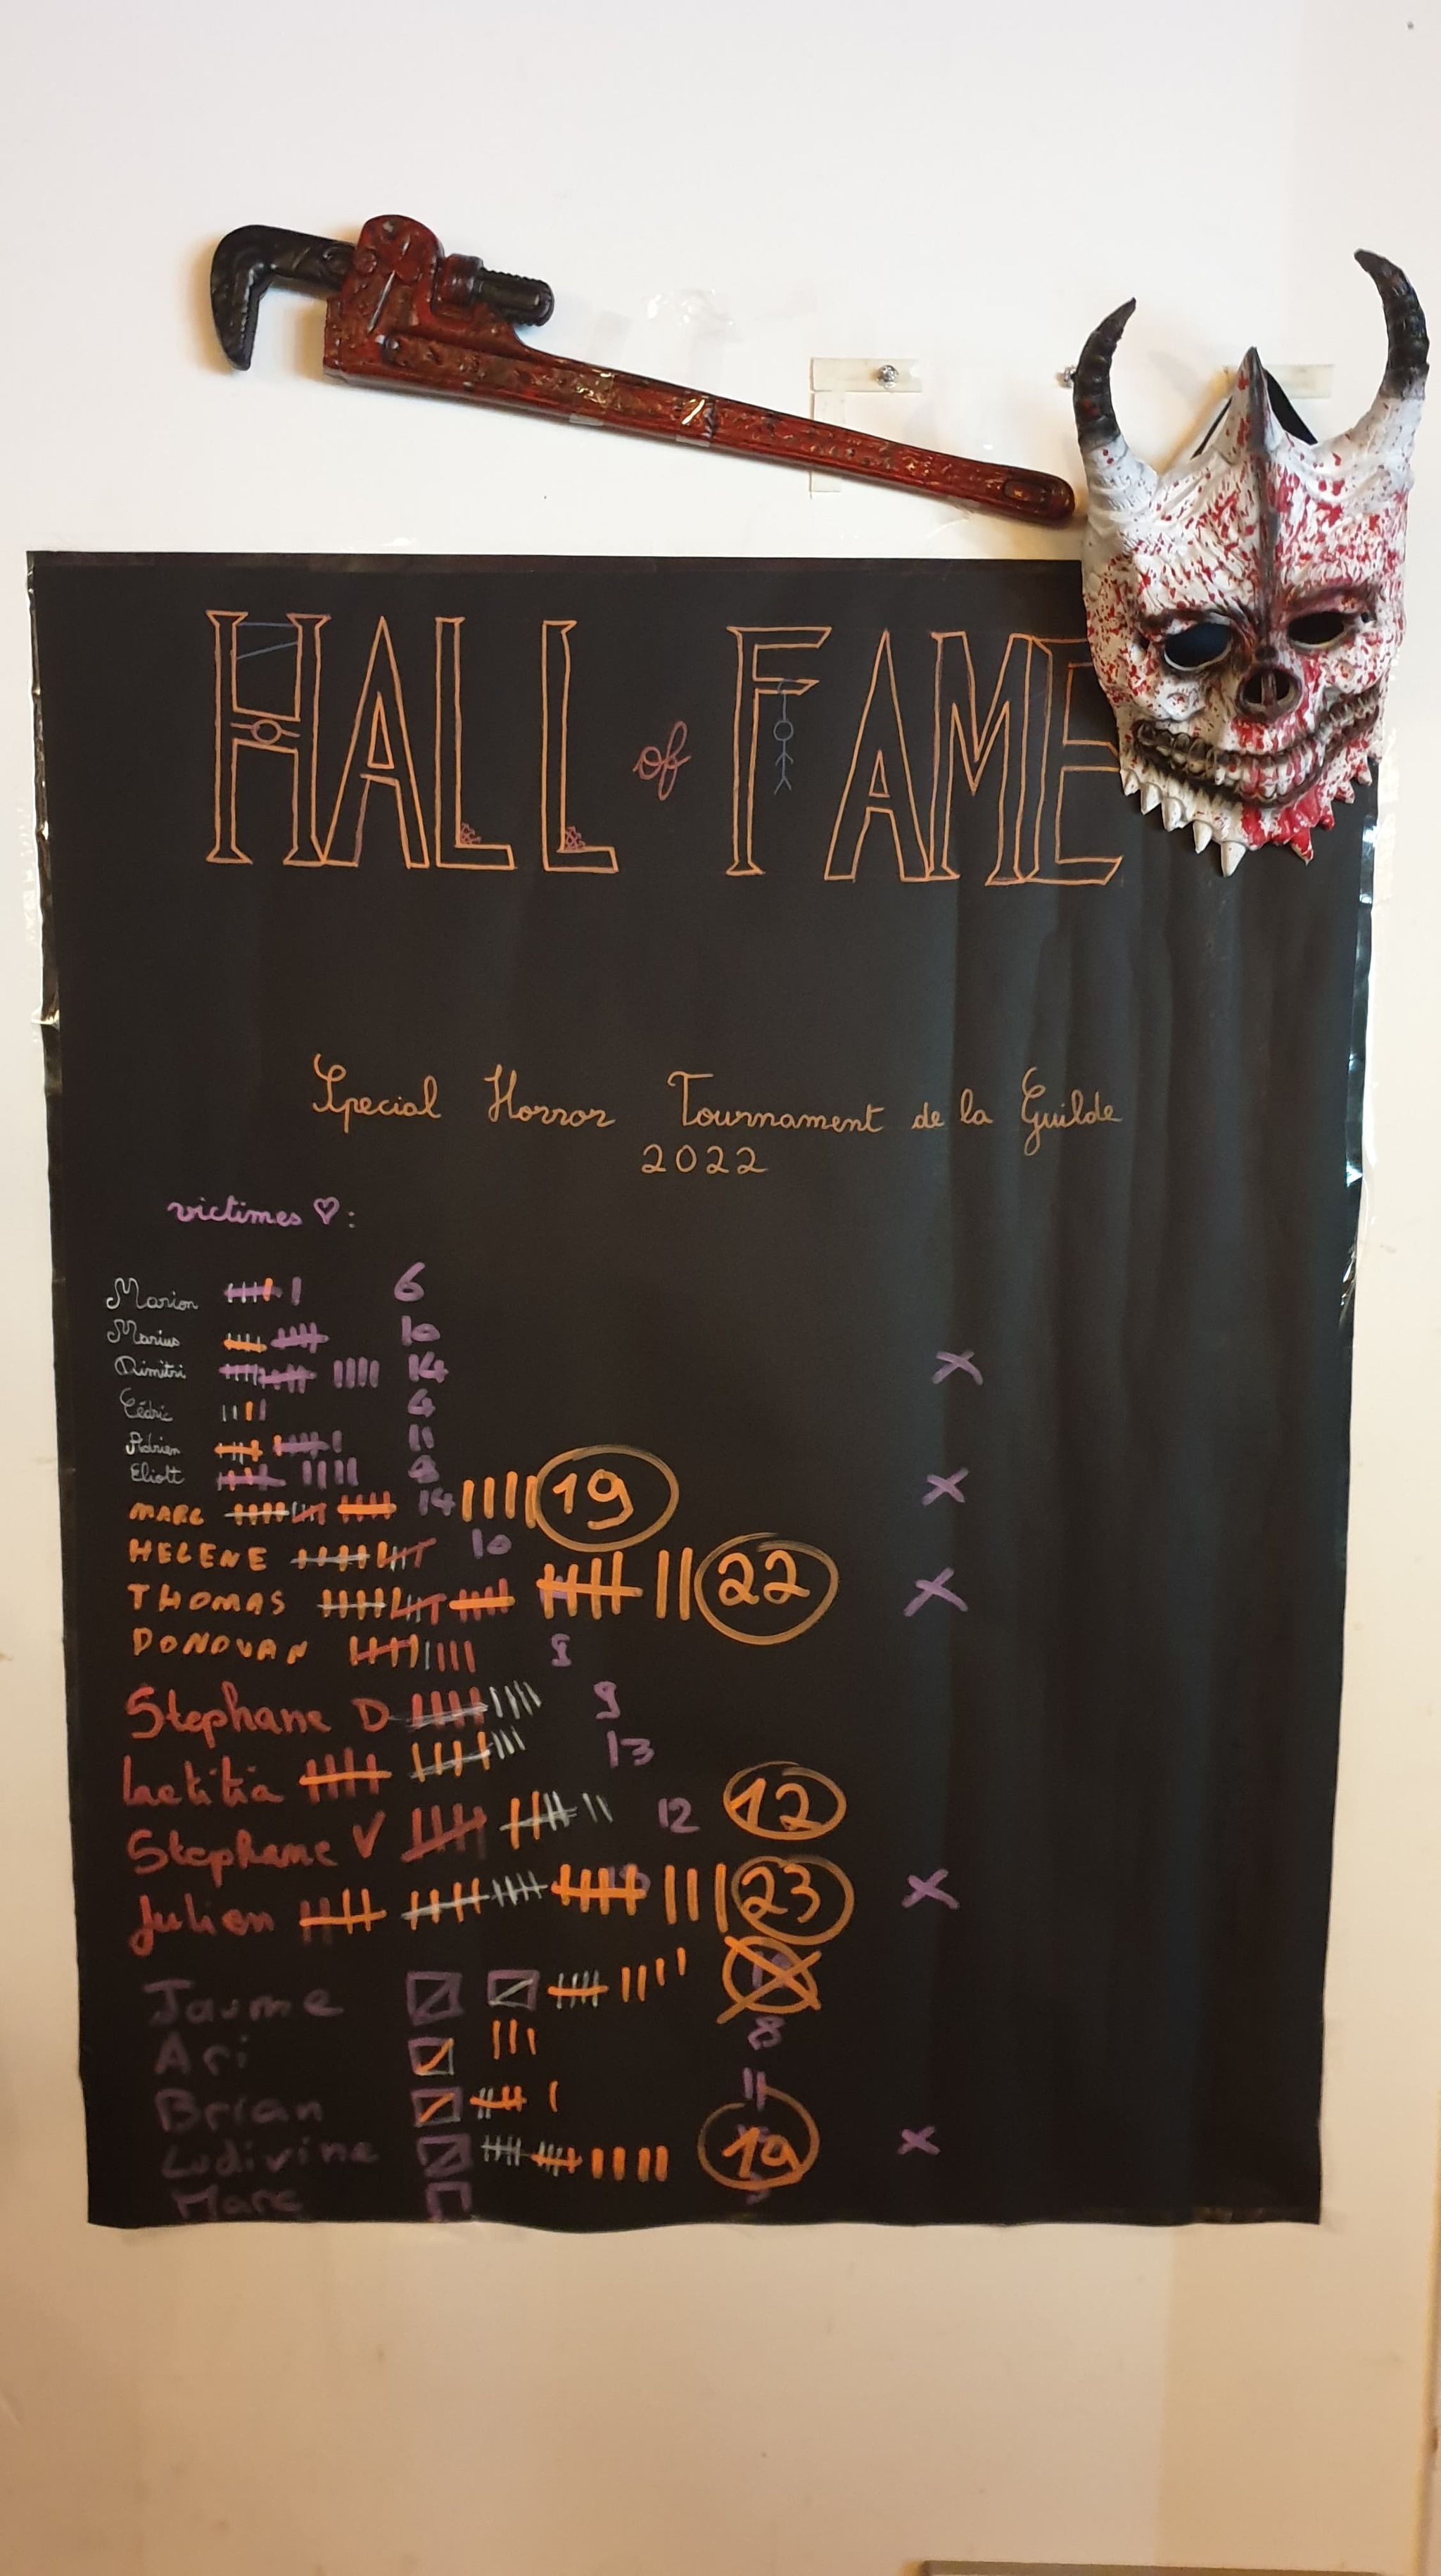 HALL of FAME
Special Horror Tournament de la Guilde
2022
victimes ♡ :
Marion 6
Marius 10
Dimitri 14 X
Cédric 4
Adrien 11
Eliott X
MARC 14 19
HELENE 10
THOMAS 22 X
DONOVAN 9
Stephane D 9
Laetitia 13
Stephane V 12 12
Julien 23 X
Jaume
Ari 8
Brian 11
Ludivine 19 X
Marc